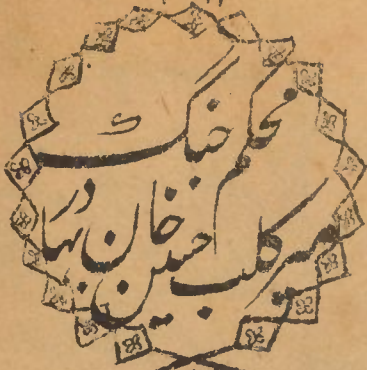 محکم جنگ
میر کلب حسین خان بہادر